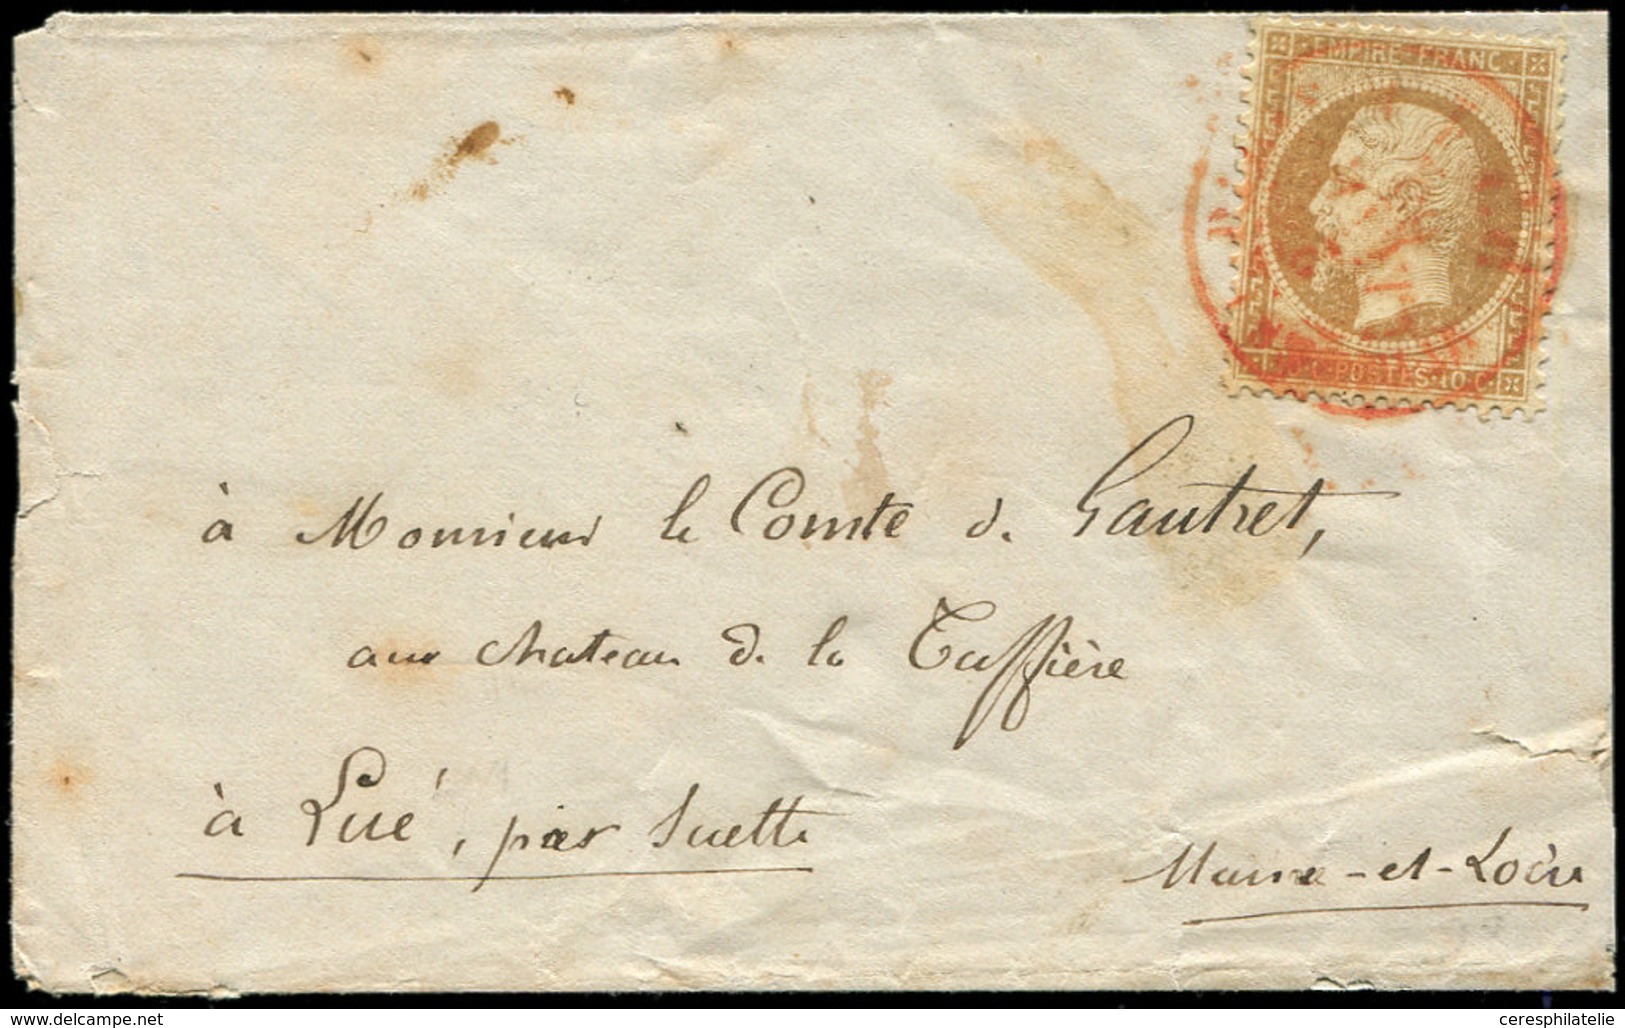 EMPIRE FRANC
10 C POSTES 10 C
à Monsieur le Comte de Gautret,
au chateau de la Tuffière
à Lué, par Suette
Maine-et-Loire
www.delcampe.net
ceresphilatelie